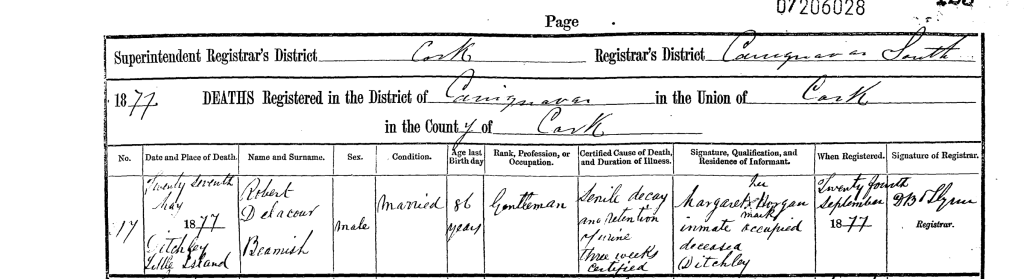 07206028
Page
Superintendent Registrar's District Cork Registrar's District Carrignavar South
1877 DEATHS Registered in the District of Carrignavar in the Union of Cork
in the County of Cork
No. Date and Place of Death. Name and Surname. Sex. Condition. Age last Birthday Rank, Profession, or Occupation. Certified Cause of Death, and Duration of Illness. Signature, Qualification, and Residence of Informant. When Registered. Signature of Registrar.
17
Twenty Seventh
May
1877
Ditchley
Little Island
Robert
Delacour
Beamish
Male
Married
86
years
Gentleman
Senile decay
and retention
of urine
three weeks
certified
her
Margaret X Horgan
mark
inmate occupied
deceased
Ditchley
Twenty fourth
September
1877
Registrar.